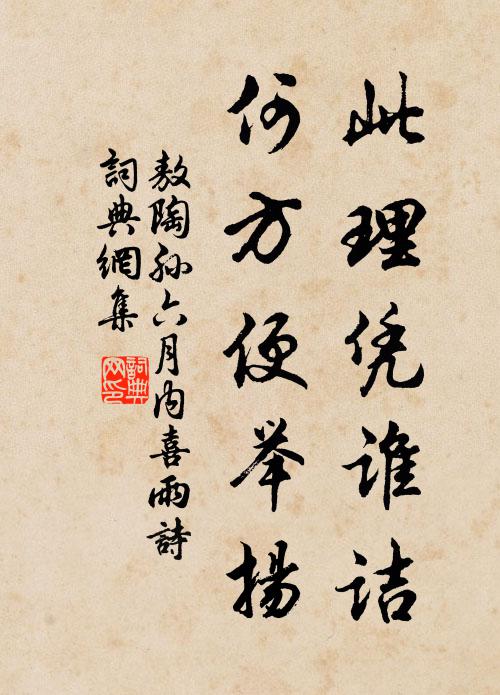 此理凭誰詰
何方便举揚
敖陶孙六月内喜雨詩
詞典網集
詞典网印